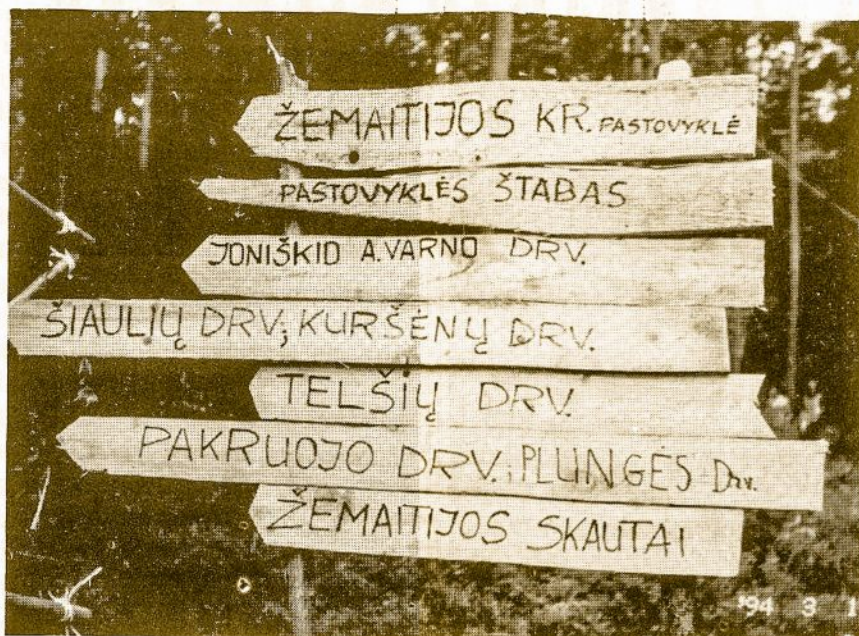 ŽEMAITIJOS KR. PASTOVYKLĖ
PASTOVYKLĖS ŠTABAS
JONIŠKIO A.VARNO DRV.
ŠIAULIŲ DRV; KURŠĖNŲ DRV.
TELŠIŲ DRV.
PAKRUOJO DRV.; PLUNGĖS Drv.
ŽEMAITIJOS SKAUTAI
'94 3 1